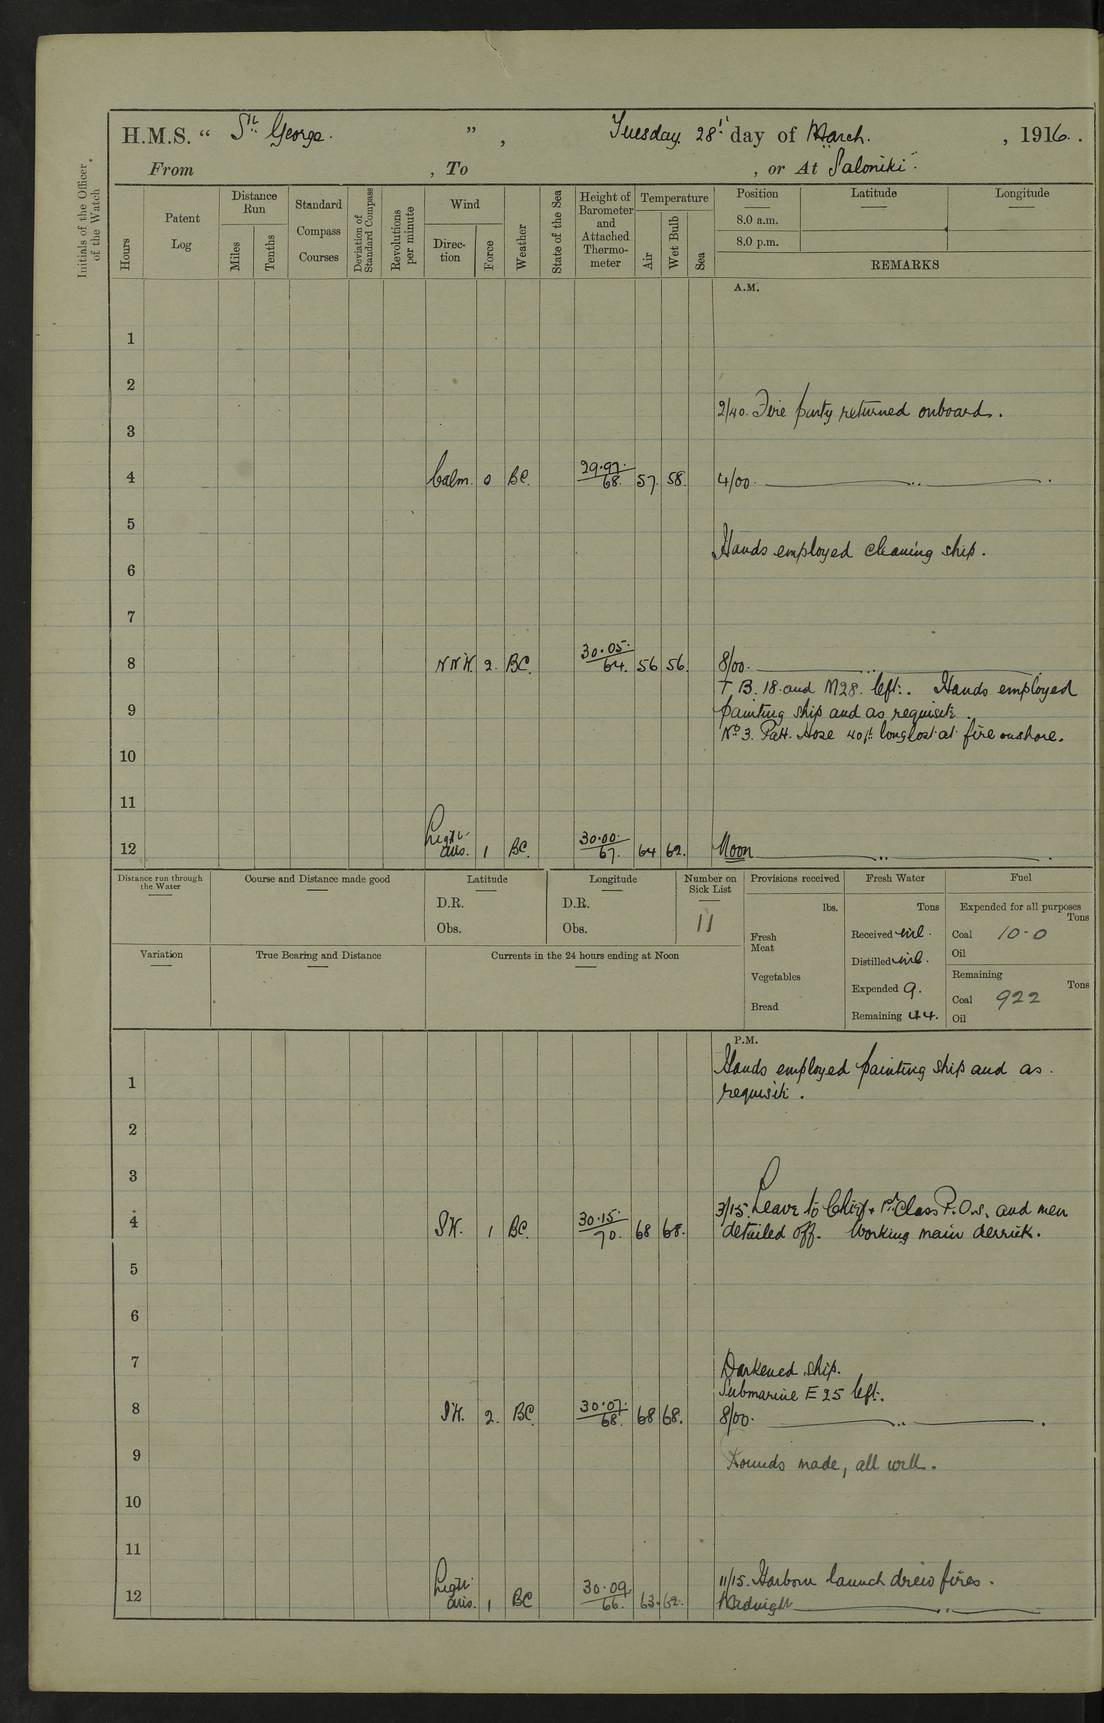 H.M.S. “ St. George. ” , Tuesday. 28th day of March. , 1916.
From , To , or At Saloniki.
Initials of the Officer of the Watch.
Hours
Patent Log
Distance Run
Miles
Tenths
Standard Compass Courses
Deviation of Standard Compass
Revolutions per minute
Wind
Direc-tion
Force
Weather
State of the Sea
Height of Barometer and Attached Thermo-meter
Temperature
Air
Wet Bulb
Sea
Position Latitude Longitude
8.0 a.m.
8.0 p.m.
REMARKS
A.M.
1
2
2/40. Fire party returned onboard.
3
4 Calm. 0 BC. 29.97. 68. 57. 58. 4/00.
5
Hands employed cleaning ship.
6
7
8 NNW. 2. BC. 30.05. 64. 56 56. 8/00.
T B. 18. and M28. left. Hands employed
9 painting ship and as requisite.
No 3. Patt. Hose 40ft long lost at fire on shore.
10
11
12 Light airs. 1 BC. 30.00. 67. 64 62. Noon
Distance run through the Water
Course and Distance made good
Latitude
D.R.
Obs.
Longitude
D.R.
Obs.
Number on Sick List
11
Provisions received
lbs.
Fresh Meat
Vegetables
Bread
Fresh Water
Tons
Received nil.
Distilled nil.
Expended 9.
Remaining 44.
Fuel
Expended for all purposes
Tons
Coal 10-0
Oil
Remaining
Tons
Coal 922
Oil
Variation
True Bearing and Distance
Currents in the 24 hours ending at Noon
P.M.
Hands employed painting ship and as
1 requisite.
2
3
3/15. Leave to Chief & 1st Class P.O.s. and men
4 SW. 1 BC. 30.15. 70. 68 68. detailed off. Working main derrick.
5
6
7 Darkened ship.
Submarine E 25 left.
8 SW. 2. BC. 30.07. 68. 68 68. 8/00.
9 Rounds made, all well.
10
11
11/15. Harbour launch drew fires.
12 Light airs. 1 BC 30.09 66. 63. 62. Midnight